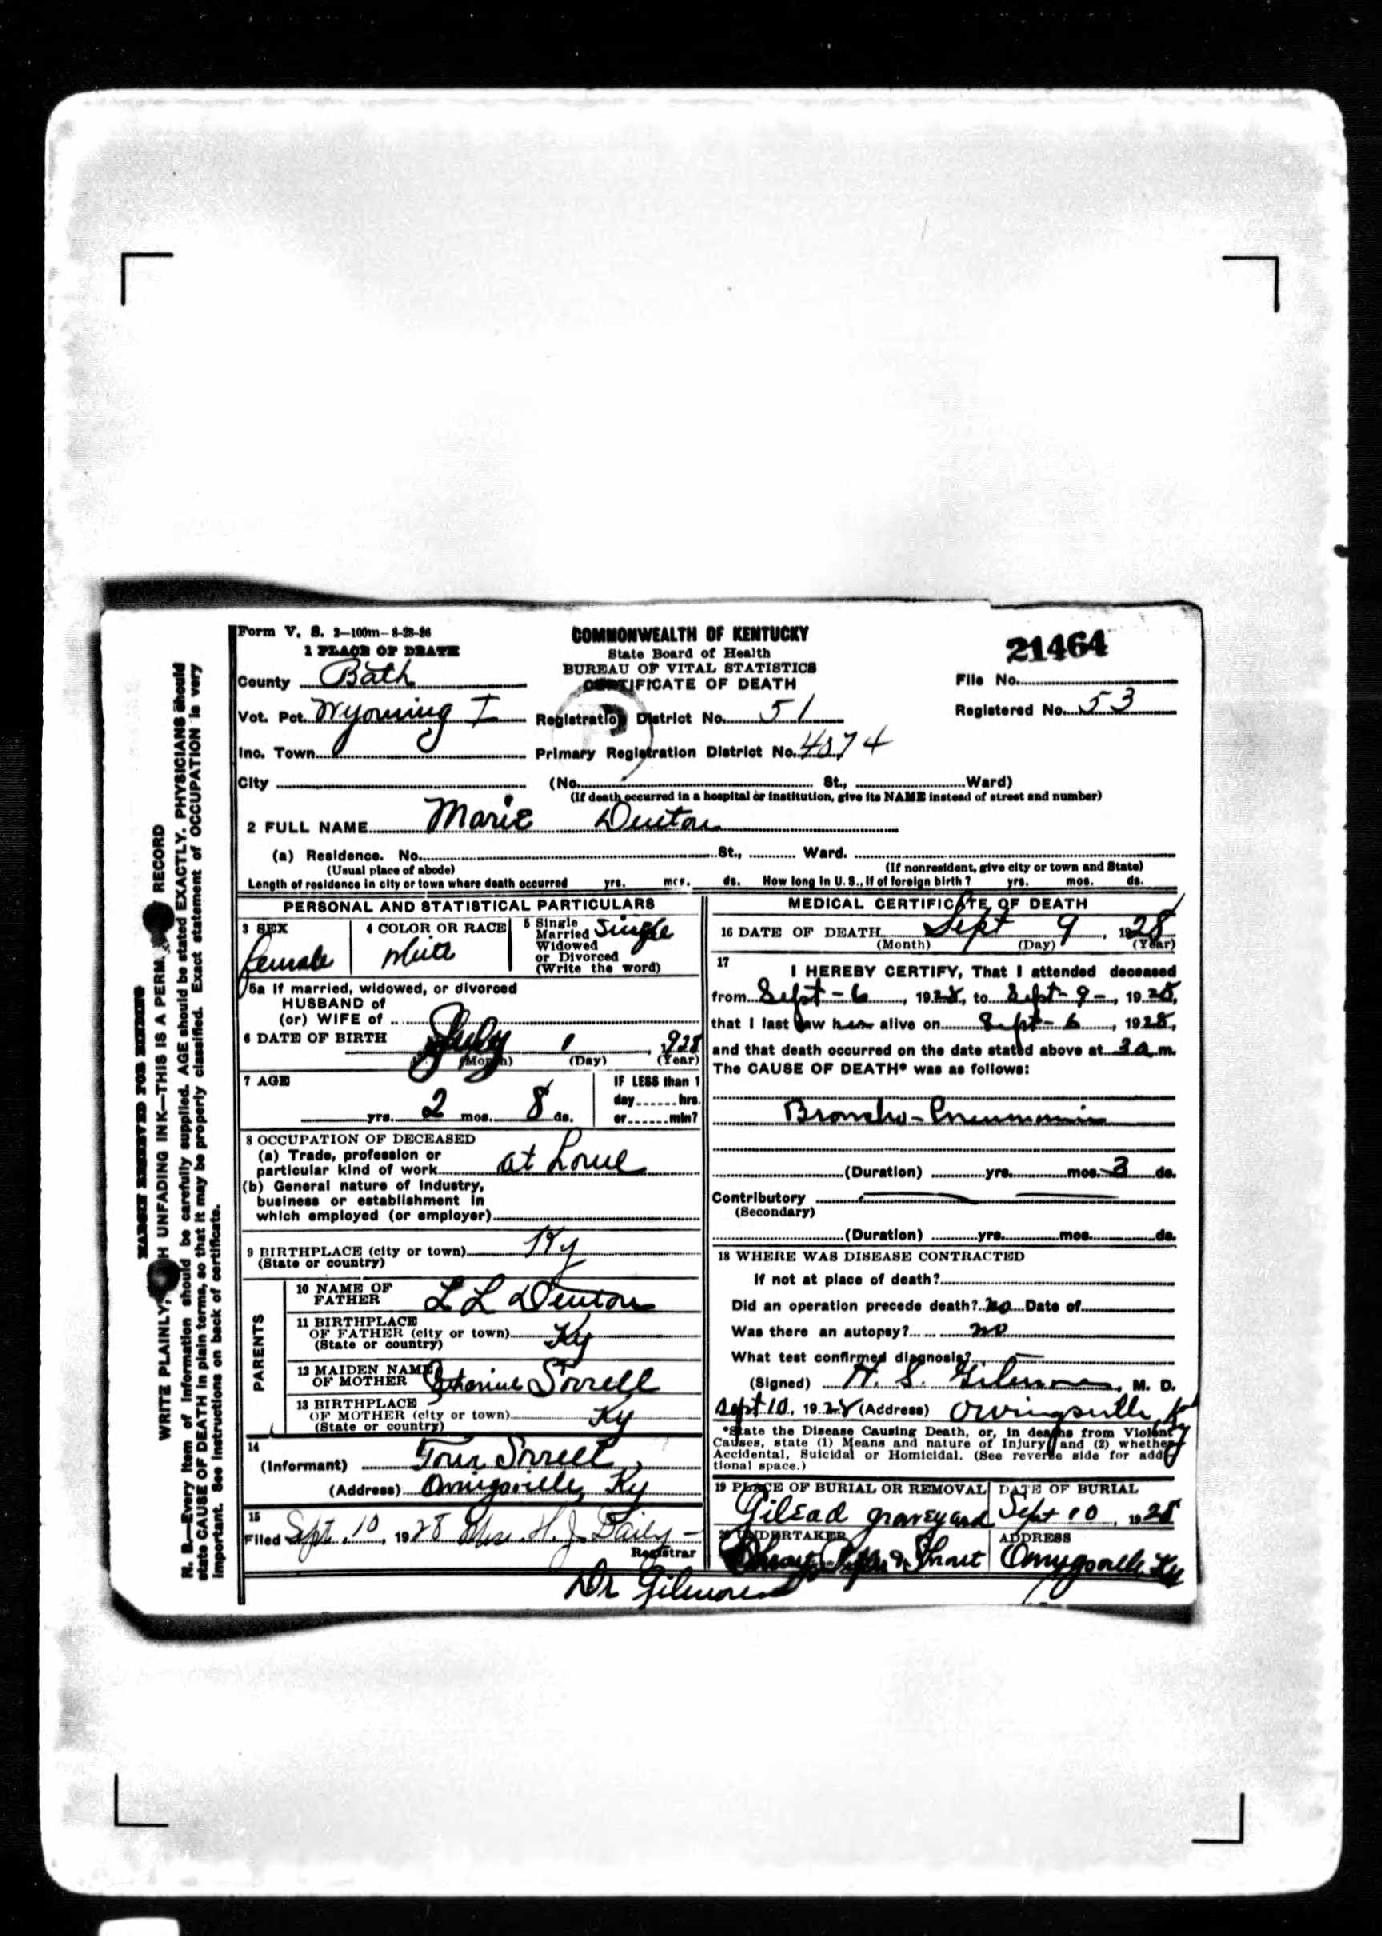 Form V. S. 2-100m-8-28-26
COMMONWEALTH OF KENTUCKY
State Board of Health
BUREAU OF VITAL STATISTICS
CERTIFICATE OF DEATH
21464
1 PLACE OF DEATH
County Bath
File No.
Vot. Pct. Wyoming I Registration District No. 51 Registered No. 53
Inc. Town Primary Registration District No. 4074
City (No. St., Ward)
(If death occurred in a hospital or institution, give its NAME instead of street and number)
2 FULL NAME Marie Denton
(a) Residence. No. St., Ward.
(Usual place of abode) (If nonresident, give city or town and State)
Length of residence in city or town where death occurred yrs. mos. ds. How long in U. S., if of foreign birth? yrs. mos. ds.
PERSONAL AND STATISTICAL PARTICULARS
3 SEX female
4 COLOR OR RACE white
5 Single Married Widowed or Divorced (Write the word) Single
5a If married, widowed, or divorced
HUSBAND of
(or) WIFE of
6 DATE OF BIRTH July 1, 928
(Month) (Day) (Year)
7 AGE
yrs. 2 mos. 8 ds.
IF LESS than 1 day hrs. or min?
8 OCCUPATION OF DECEASED
(a) Trade, profession or
particular kind of work at home
(b) General nature of industry,
business or establishment in
which employed (or employer)
9 BIRTHPLACE (city or town) Ky
(State or country)
PARENTS
10 NAME OF FATHER L L Denton
11 BIRTHPLACE
OF FATHER (city or town) Ky
(State or country)
12 MAIDEN NAME
OF MOTHER Catherine Sorrell
13 BIRTHPLACE
OF MOTHER (city or town) Ky
(State or country)
14
(Informant) Sorrell
(Address) Owingsville, Ky
15
Filed Sept. 10, 1928 Mrs H. J. Daily
Registrar
Dr Gilmore
MEDICAL CERTIFICATE OF DEATH
16 DATE OF DEATH Sept 9, 1928
(Month) (Day) (Year)
17
I HEREBY CERTIFY, That I attended deceased
from Sept-6, 1928, to Sept-9-, 1928,
that I last saw her alive on Sept-6, 1928,
and that death occurred on the date stated above at 3 a m.
The CAUSE OF DEATH* was as follows:
Broncho-Pneumonia
(Duration) yrs. mos. 3 ds.
Contributory
(Secondary)
(Duration) yrs. mos. ds.
18 WHERE WAS DISEASE CONTRACTED
If not at place of death?
Did an operation precede death? no Date of
Was there an autopsy? no
What test confirmed diagnosis?
(Signed) H. S. Gilmore, M. D.
Sept 10, 1928 (Address) Owingsville, Ky
*State the Disease Causing Death, or, in deaths from Violent
Causes, state (1) Means and nature of Injury and (2) whether
Accidental, Suicidal or Homicidal. (See reverse side for addi
tional space.)
19 PLACE OF BURIAL OR REMOVAL DATE OF BURIAL
Gilead graveyard Sept 10, 1928
20 UNDERTAKER ADDRESS
& Shrout Owingsville Ky
MARGIN RESERVED FOR BINDING
WRITE PLAINLY, WITH UNFADING INK—THIS IS A PERM RECORD
N. B.—Every item of information should be carefully supplied. AGE should be stated EXACTLY. PHYSICIANS should
state CAUSE OF DEATH in plain terms, so that it may be properly classified. Exact statement of OCCUPATION is very
important. See instructions on back of certificate.